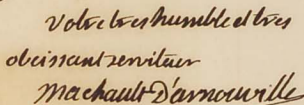 votre tres humble et tres
obeissant serviteur
Machault D'arnouville